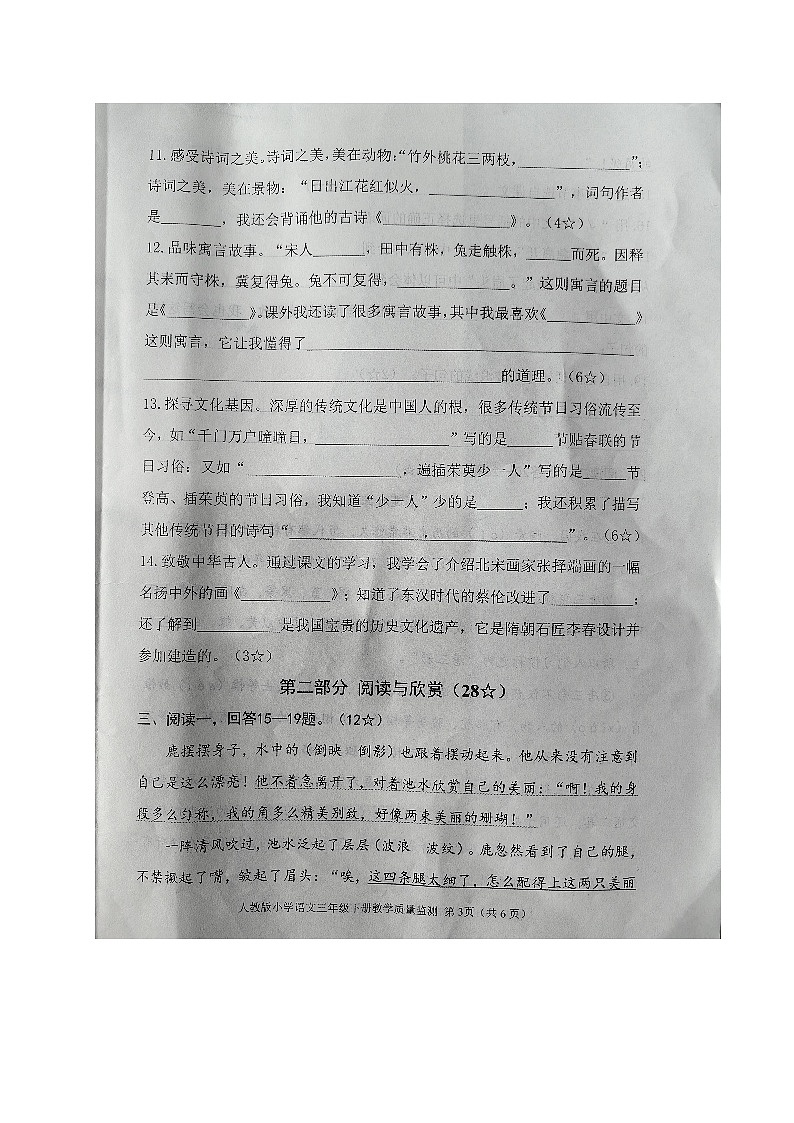 11. 感受诗词之美。诗词之美，美在动物：“竹外桃花三两枝，____________”；
诗词之美，美在景物：“日出江花红似火，____________”，词句作者
是______，我还会背诵他的古诗《____________》。（4☆）
12. 品味寓言故事。“宋人______，田中有株，兔走触株，______而死。因释
其耒而守株，冀复得兔。兔不可复得，____________。”这则寓言的题目
是《________》。课外我还读了很多寓言故事，其中我最喜欢《________》
这则寓言，它让我懂得了______________________________
______________________________的道理。（6☆）
13. 探寻文化基因。深厚的传统文化是中国人的根，很多传统节日习俗流传至
今，如“千门万户曈曈日，____________”写的是______节贴春联的节
日习俗；又如“____________，遍插茱萸少一人”写的是______节
登高、插茱萸的节日习俗，我知道“少一人”少的是______；我还积累了描写
其他传统节日的诗句“____________，____________”。（6☆）
14. 致敬中华古人。通过课文的学习，我学会了介绍北宋画家张择端画的一幅
名扬中外的画《________》；知道了东汉时代的蔡伦改进了________；
还了解到________是我国宝贵的历史文化遗产，它是隋朝石匠李春设计并
参加建造的。（3☆）
第二部分 阅读与欣赏（28☆）
三、阅读一，回答15—19题。（12☆）
鹿摆摆身子，水中的（倒映 倒影）也跟着摆动起来。他从来没有注意到
自己是这么漂亮！他不着急离开了，对着池水欣赏自己的美丽：“啊！我的身
段多么匀称，我的角多么精美别致，好像两束美丽的珊瑚！”
一阵清风吹过，池水泛起了层层（波浪 波纹）。鹿忽然看到了自己的腿，
不禁撅起了嘴，皱起了眉头：“唉，这四条腿太细了，怎么配得上这两只美丽
人教版小学语文三年级下册教学质量监测 第3页（共6页）